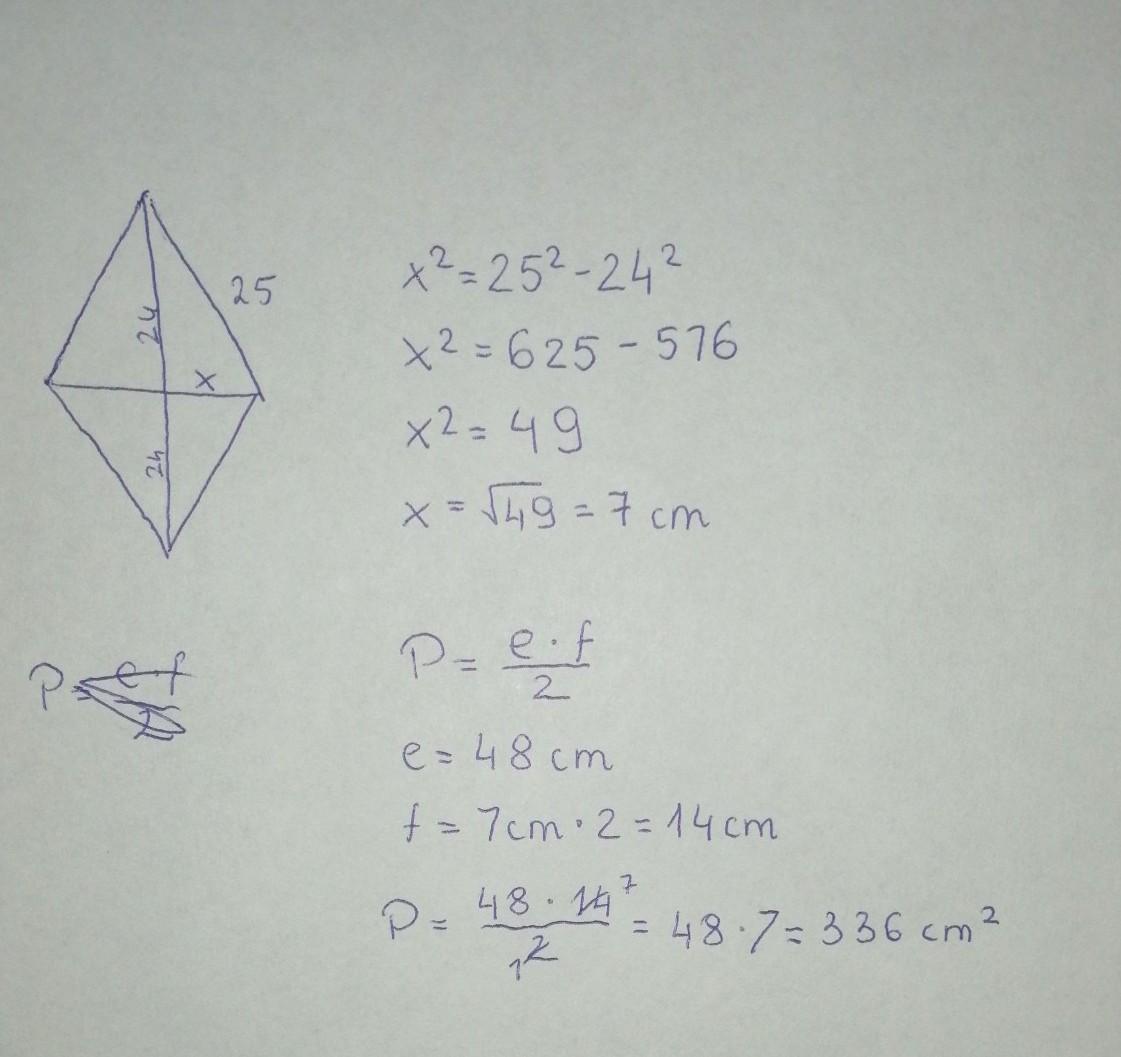 25
24
x
24
x² = 25² - 24²
x² = 625 - 576
x² = 49
x = √49 = 7 cm
P = e f / 2
P = e · f / 2
e = 48 cm
f = 7cm · 2 = 14cm
P = 48 · 14 7 / 2 1 = 48 · 7 = 336 cm²